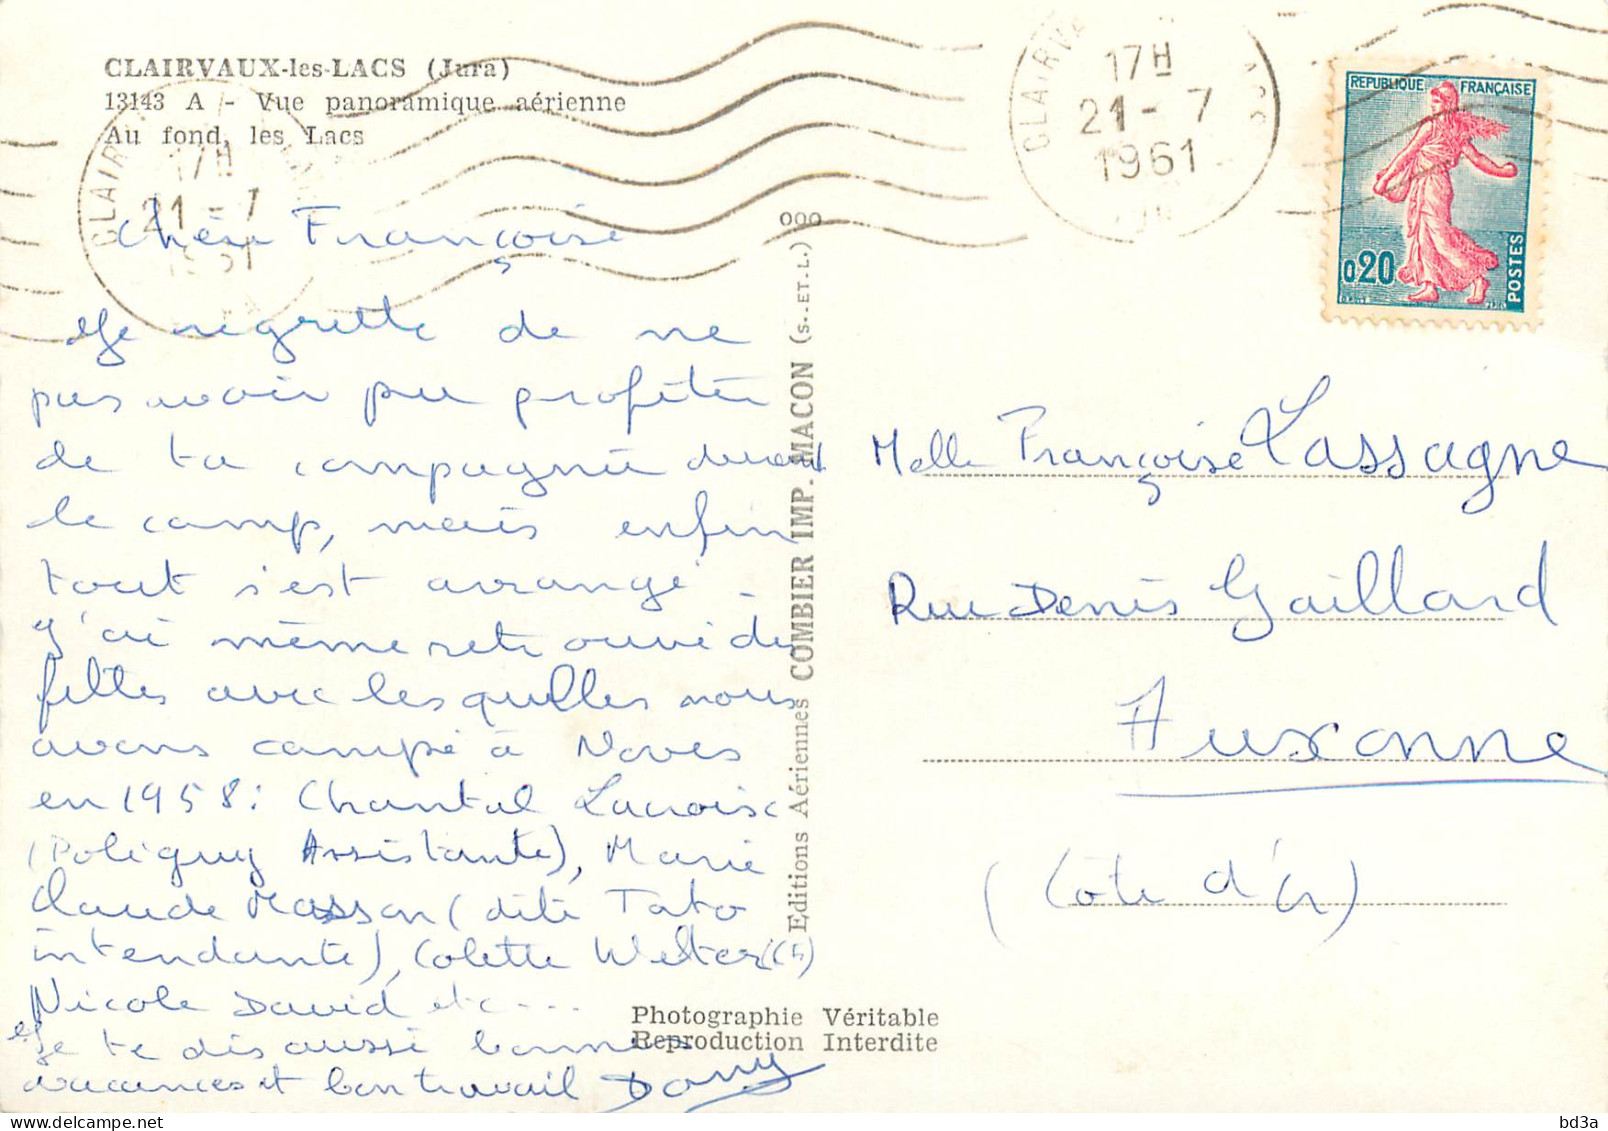 CLAIRVAUX-les-LACS (Jura)
13143 A - Vue panoramique aérienne
Au fond, les Lacs
17H
21 - 7
1961
CLAIRV
17H
21 - 7
1961
REPUBLIQUE FRANÇAISE
0,20
POSTES
Chère Françoise
Je regrette de ne
pas avoir pu profiter
de ta compagnie durant
le camp, mais enfin
tout s'est arrangé.
J'ai même retrouvé des
filles avec lesquelles nous
avons campé à Noves
en 1958 : Chantal Lacroix
(Poligny Assistante), Marie
Claude Masson (dite Tato
intendante), Colette
Nicole David etc...
Je te dis aussi bonnes
vacances et bon travail Dany
Editions Aériennes COMBIER IMP. MACON (S.-ET-L.) 000
Photographie Véritable
Reproduction Interdite
Melle Françoise Lassagne
Rue Denis Gaillard
Auxonne
(Côte d'Or)
bd3a